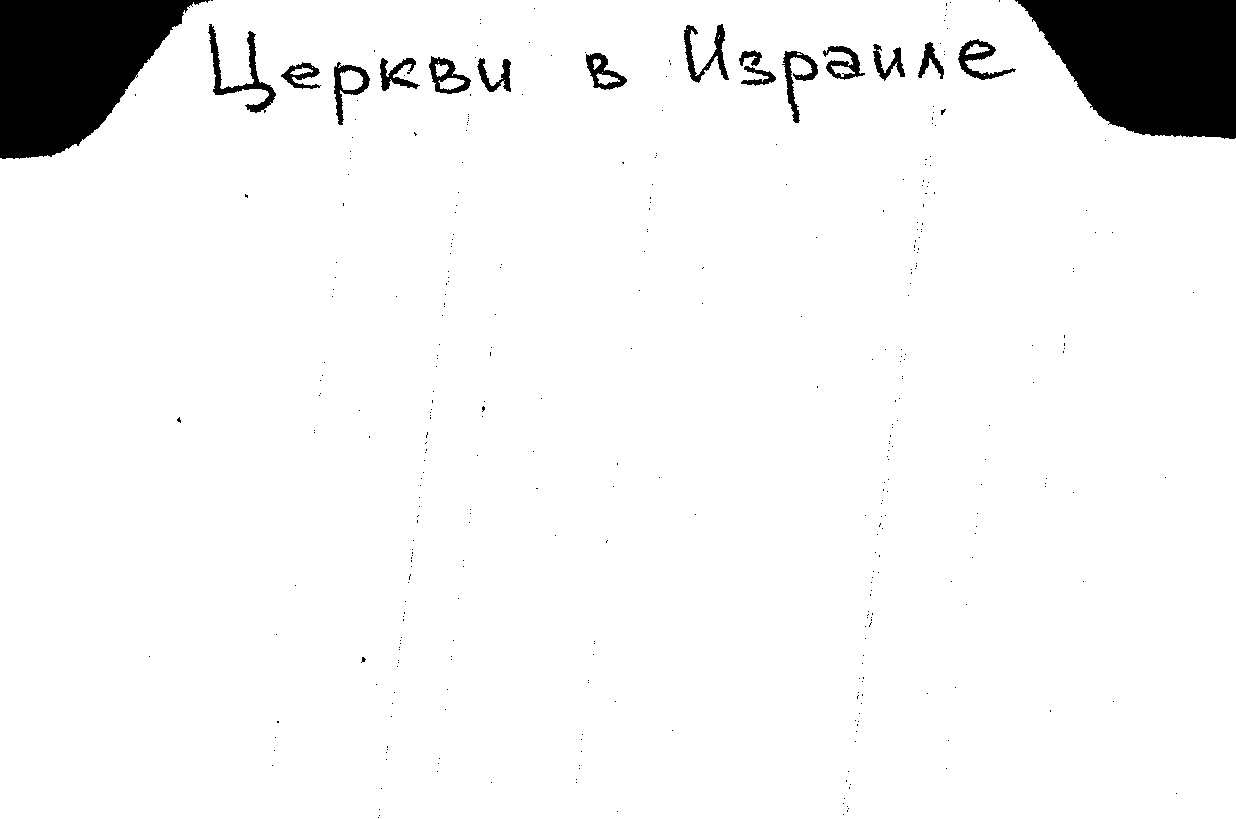 Церкви в Израиле